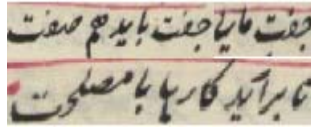 جفت مایی جفت باید هم صفت
تا برآید کارها با مصلحت